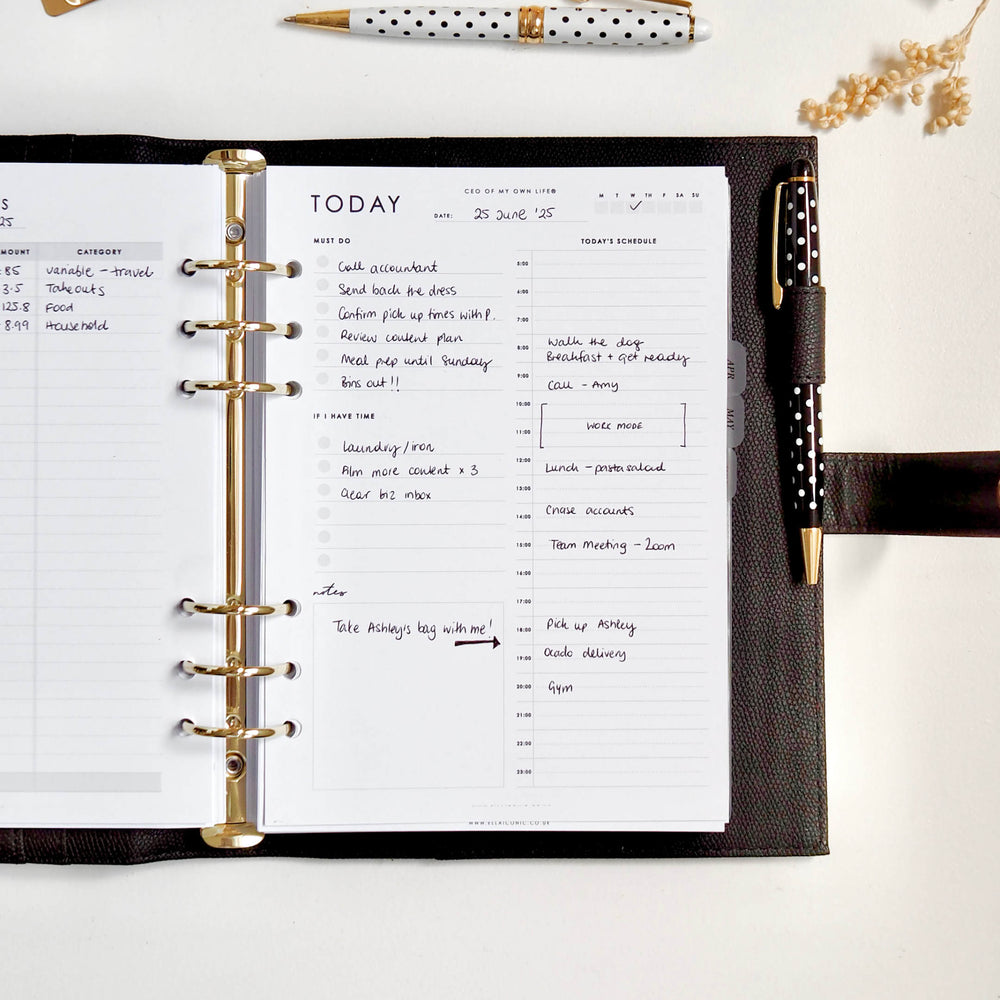 S
25
MOUNT CATEGORY
85 Variable - travel
3.5 Takeouts
125.8 Food
8.99 Household
CEO OF MY OWN LIFE®
TODAY
DATE: 25 June '25
M T W TH F SA SU
✓
MUST DO
Call accountant
Send back the dress
Confirm pick up times with P.
Review content plan
Meal prep until Sunday
Bins out!!
IF I HAVE TIME
Laundry/iron
Film more content x 3
Clear biz inbox
notes
Take Ashley's bag with me!
TODAY'S SCHEDULE
5:00
6:00
7:00
8:00 Walk the dog
Breakfast + get ready
9:00 Call - Amy
10:00
WORK MODE
11:00
12:00 Lunch - pasta salad
13:00
14:00 Chase accounts
15:00 Team Meeting - Zoom
16:00
17:00
18:00 Pick up Ashley
19:00 Ocado delivery
20:00 Gym
21:00
22:00
23:00
WWW.ELLAICONIC.CO.UK
APR
MAY